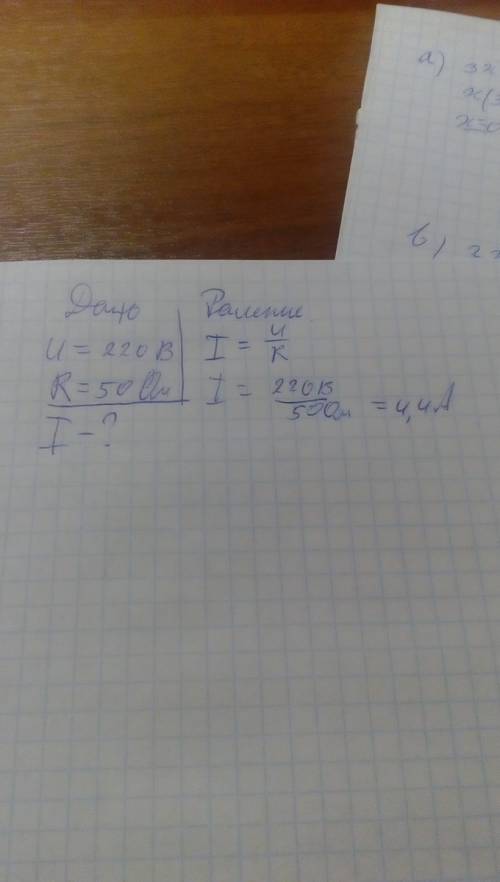 а) 3x
x(
x=0
b) 2
Дано
U = 220 В
R = 50 Ом
I - ?
Решение
I = U/R
I = 220В/50Ом = 4,4А